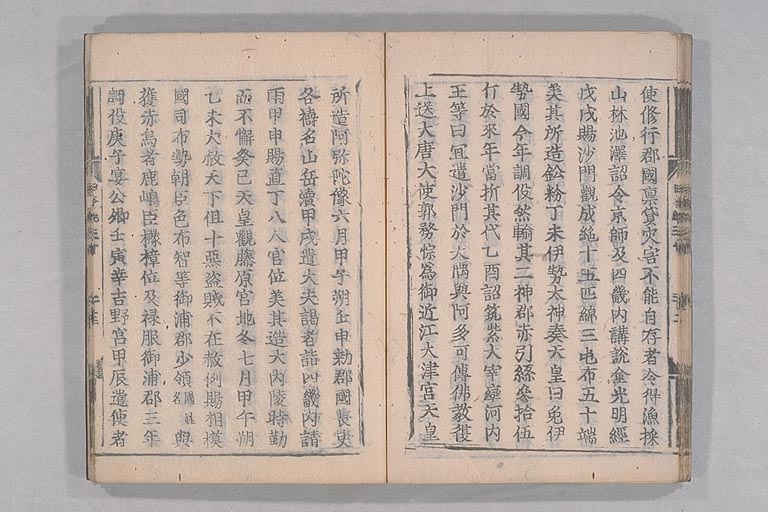 使修行郡國禀貸灾害不能自存者令得漁採
山林池澤詔令京師及四畿內講說金光明經
戊戌賜沙門觀成絁十五匹綿三屯布五十端
美其所造鈆粉丁未伊勢太神奏天皇曰免伊
勢國今年調伇然輸其二神郡赤引絲參拾伍
斤於來年當折其代乙酉詔筑紫大宰率河內
王等曰宜遣沙門於大隅與阿多可傳佛教復
上送大唐大使郭務悰為御近江大津宮天皇
所造阿弥陀像六月甲子朔壬申勅郡國長吏
各禱名山岳瀆甲戌遣大夫謁者詣四畿內請
雨甲申賜直丁八人官位美其造大內陵時勤
而不懈癸巳天皇觀藤原宮地冬七月甲午朔
乙未大赦天下但十惡盜賊不在赦例賜相模
國司布勢朝臣色布智等御浦郡少領與
獲赤烏者鹿嶋臣櫲樟位及禄服御浦郡二年
調役庚子宴公卿壬寅幸吉野宮甲辰遣使者